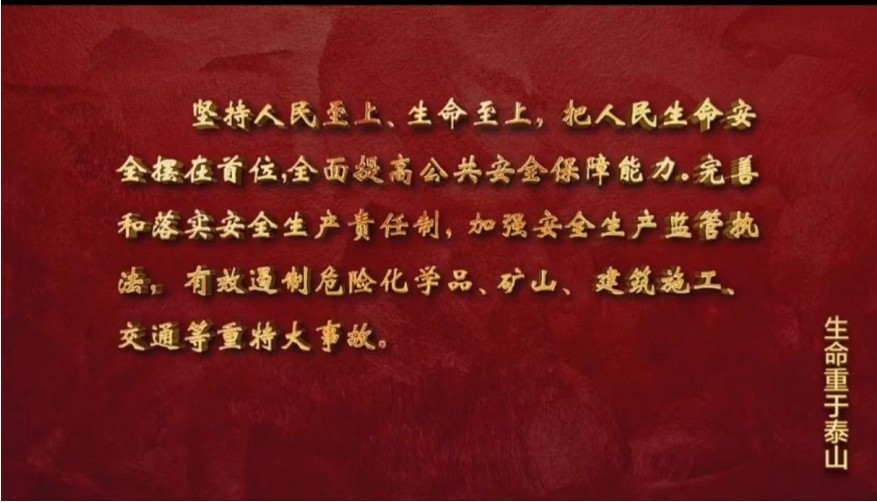 坚持人民至上、生命至上，把人民生命安
全摆在首位,全面提高公共安全保障能力。完善
和落实安全生产责任制，加强安全生产监管执
法，有效遏制危险化学品、矿山、建筑施工、
交通等重特大事故。
生命重于泰山